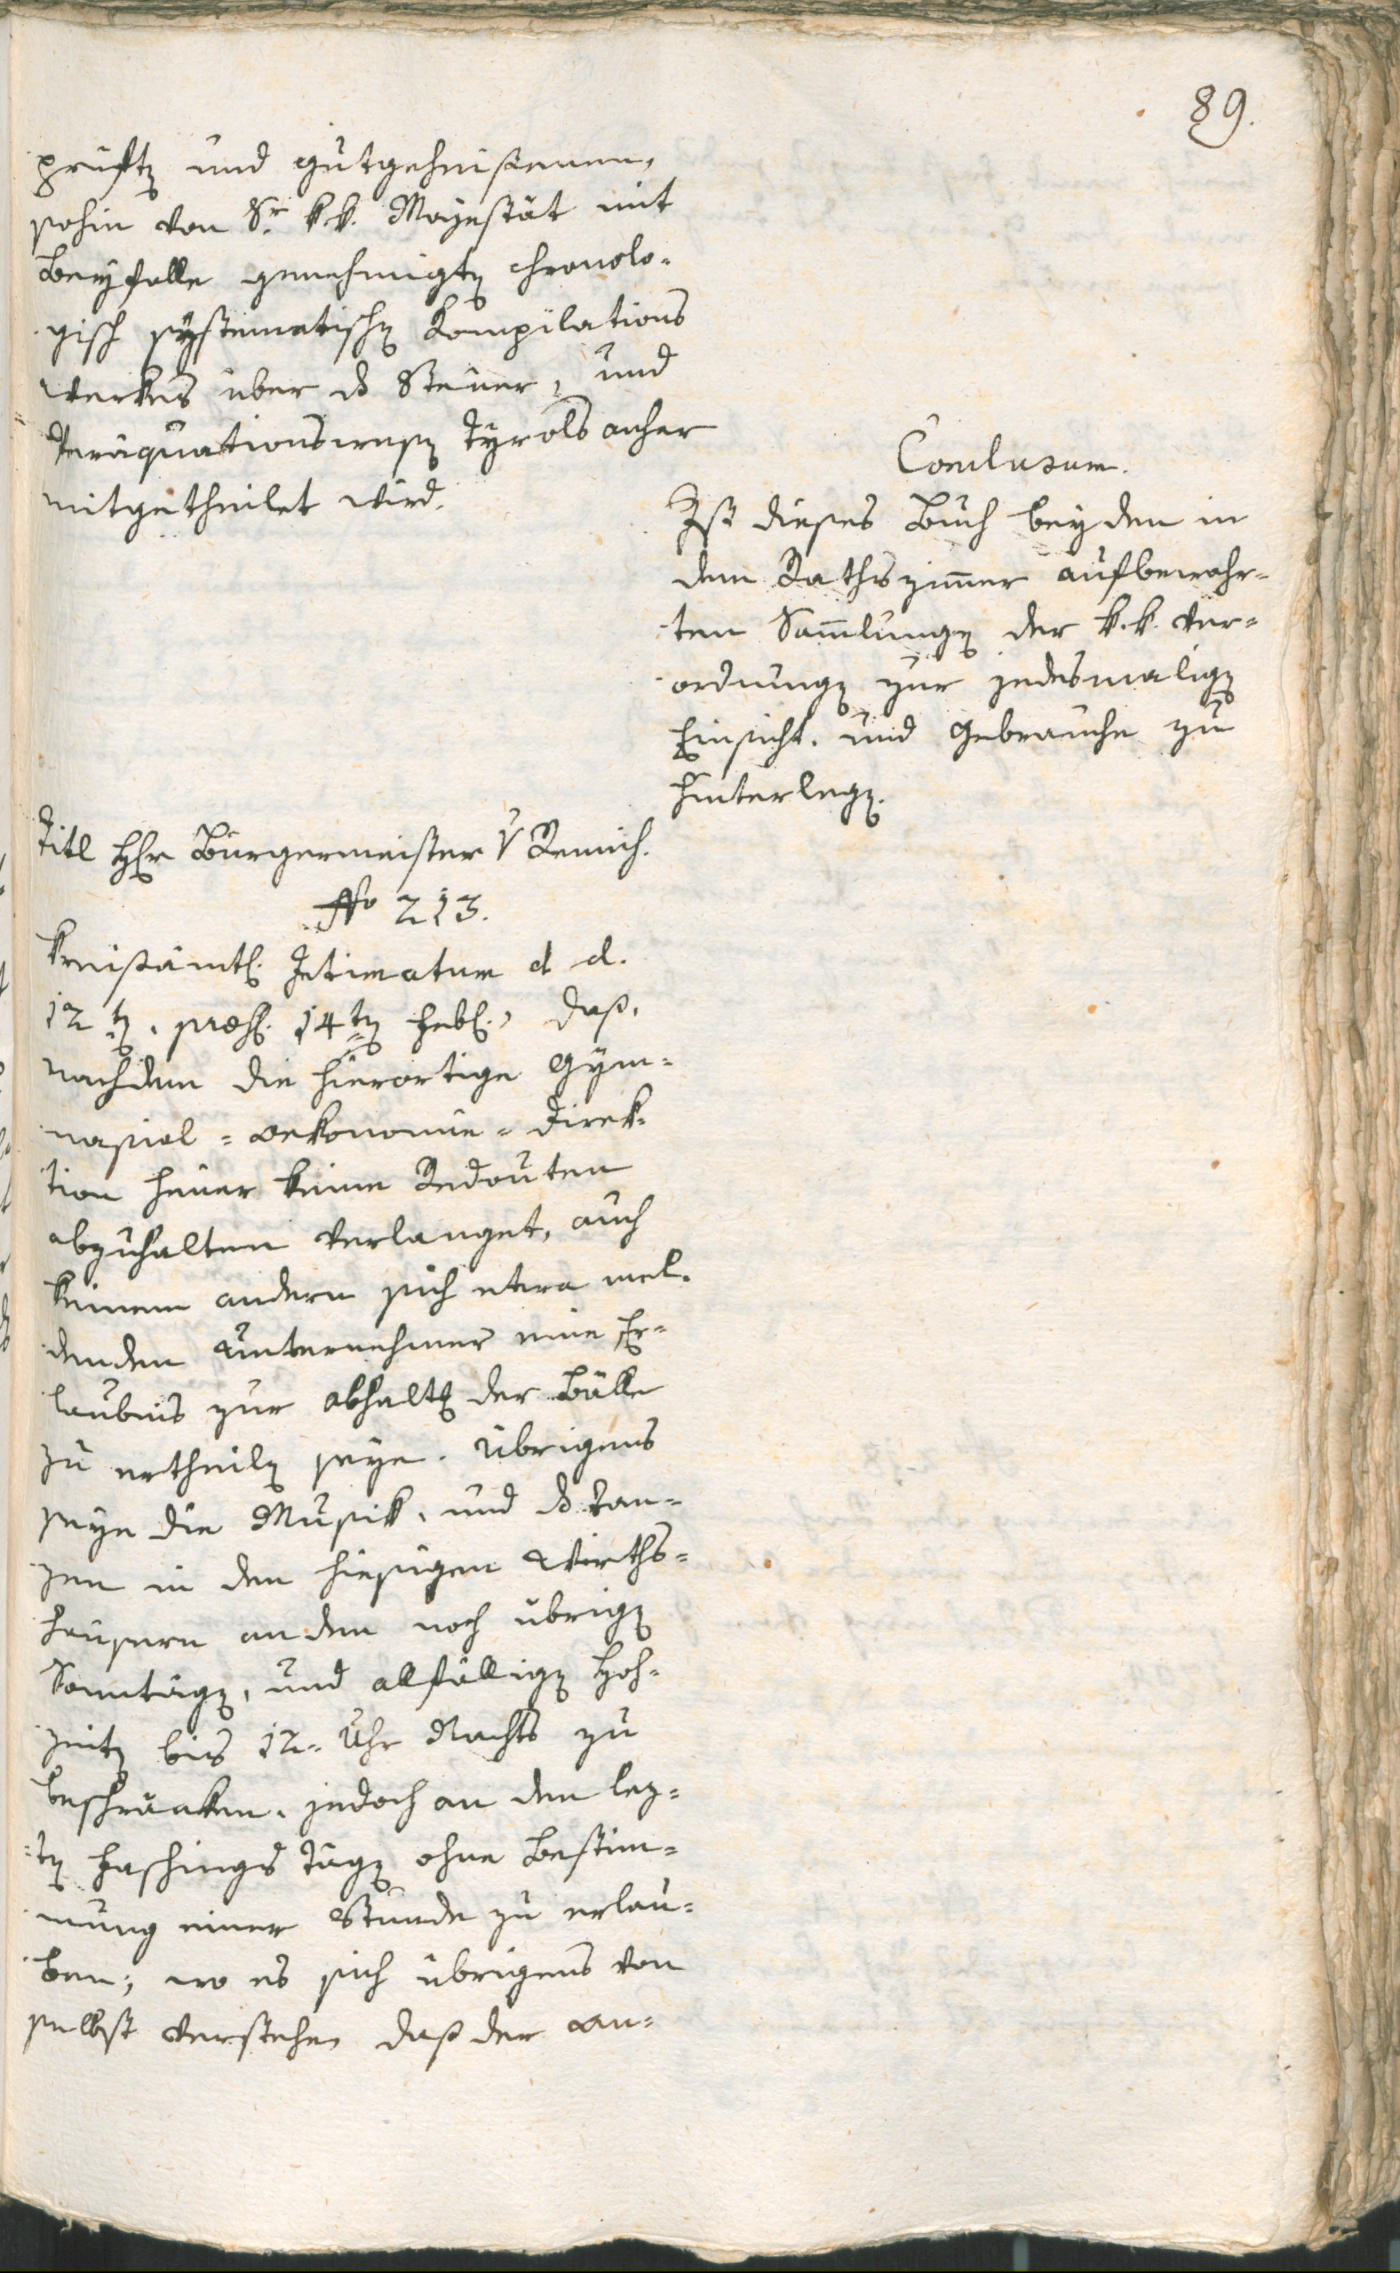 89.
prüften und gutgeheissenen,
sohin von Sr. k.k. Mayestät mit
Beyfalle genehmigten chronolo-
gisch systematischen Kompilations
werkes über das Steuer, und
Peräquationswesen Tyrols anher
mitgetheilet wird.
Conclusum.
Ist dieses Buch bey den in
dem Rathszimmer aufbewahr-
ten Sammlungen der k.k. Ver-
ordnungen zur jedesmaligen
Einsicht, und Gebrauche zu
hinterlegen.
Titl Herr Bürgermeister v Remich.
No 213.
Kreisämtl. Intimatum d d.
12ten, præs. 14ten Febr., daß,
nachdem die hierortige Gym-
nasial-Oekonomie-Direk-
tion heuer keine Redouten
abzuhalten verlanget, auch
keinem andern sich etwa mel-
denden Unternehmer eine Er-
laubnis zur Abhaltung der Bälle
zu ertheilen seye. Übrigens
seye die Musik, und das Tan-
zen in den hiesigen Wirths-
häusern an den noch übrigen
Sonntägen, und allfälligen Hoh-
zeiten bis 12. Uhr Nachts zu
beschränken, jedoch an den lez-
ten Faschings Tägen ohne Bestim-
mung einer Stunde zu erlau-
ben; wo es sich übrigens von
selbst verstehe, daß der an-